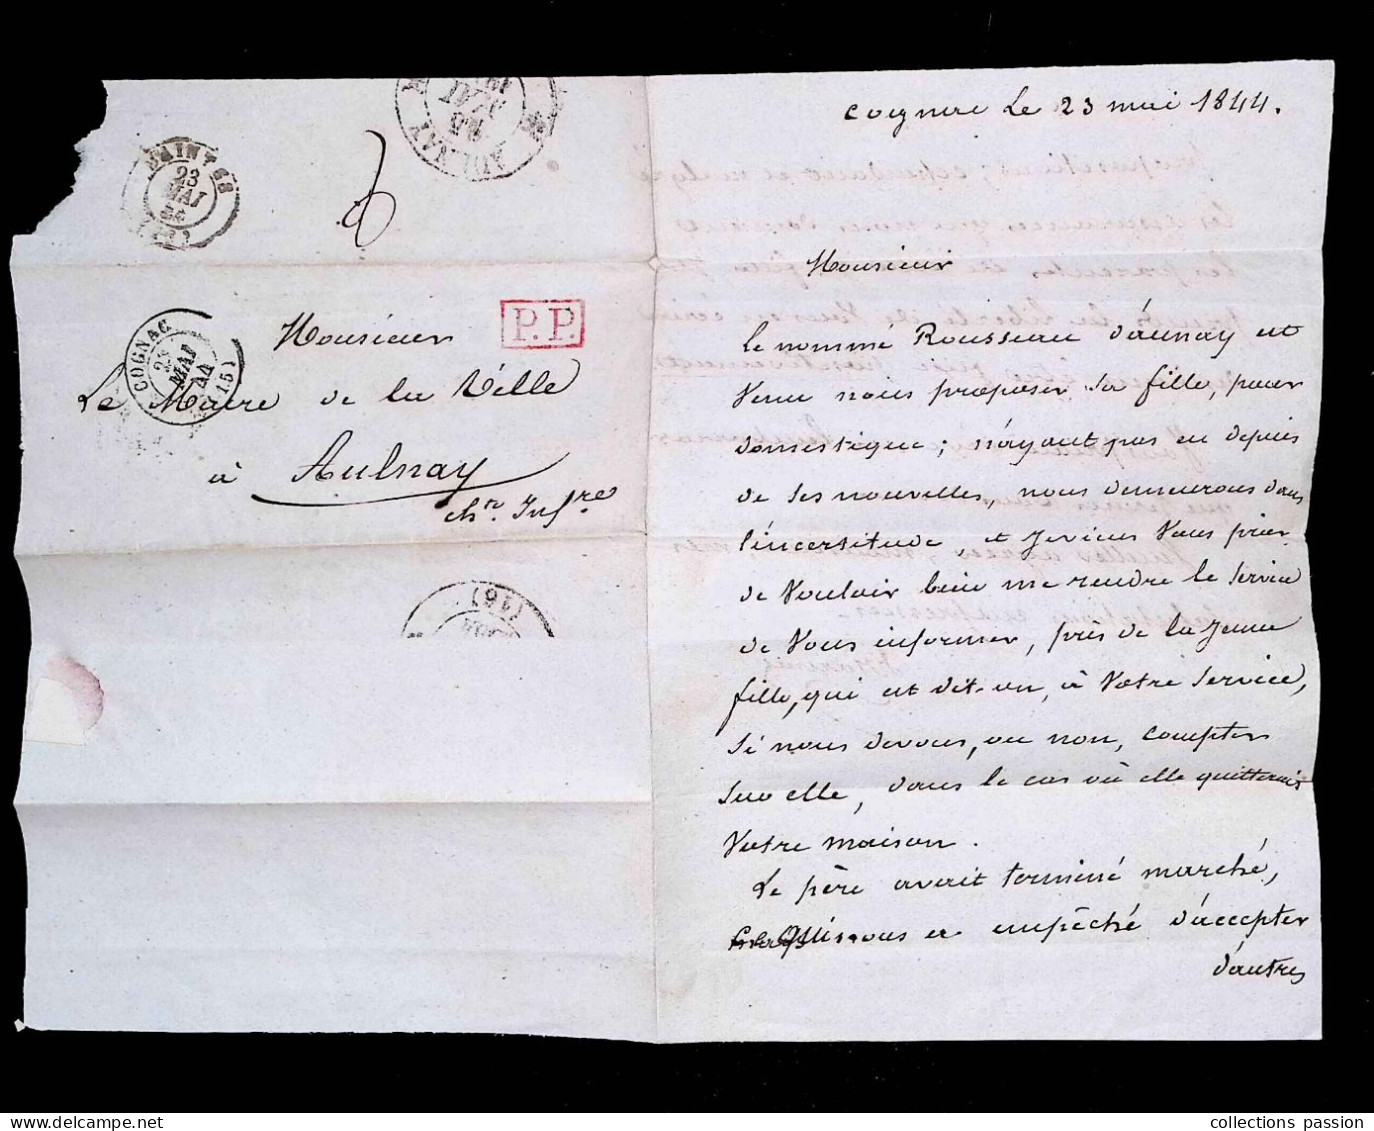 SAINTES
23
MAI
AULNAY
MAI
COGNAC
23
MAI
44
(15)
P.P.
Monsieur
Le Maire de la Ville
à Aulnay
chte Infre
(16)
Cognac le 23 mai 1844.
Monsieur
le nommé Rousseau d'aunay est
Venu nous proposer sa fille, pour
domestique; n'ayant pas eu depuis
de ses nouvelles, nous demeurons dans
l'incertitude, et je viens Vous prier
de Vouloir bien me rendre le service
de Vous informer, près de la jeune
fille, qui est dit-on, à Votre service,
si nous devons, ou non, compter
sur elle, dans le cas où elle quitterait
Votre maison.
Le père avait terminé marché,
ce Qui nous a empêché d'accepter
d'autres
collections passion